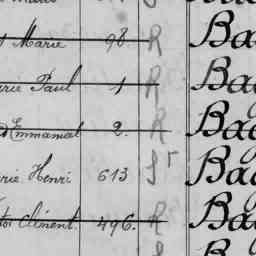 Marie 98. R Bag
rie Paul 1 R Bag
Emmanuel 2. R Bag
rie Henri 613 St Bag
tor Clément 496. R Bag